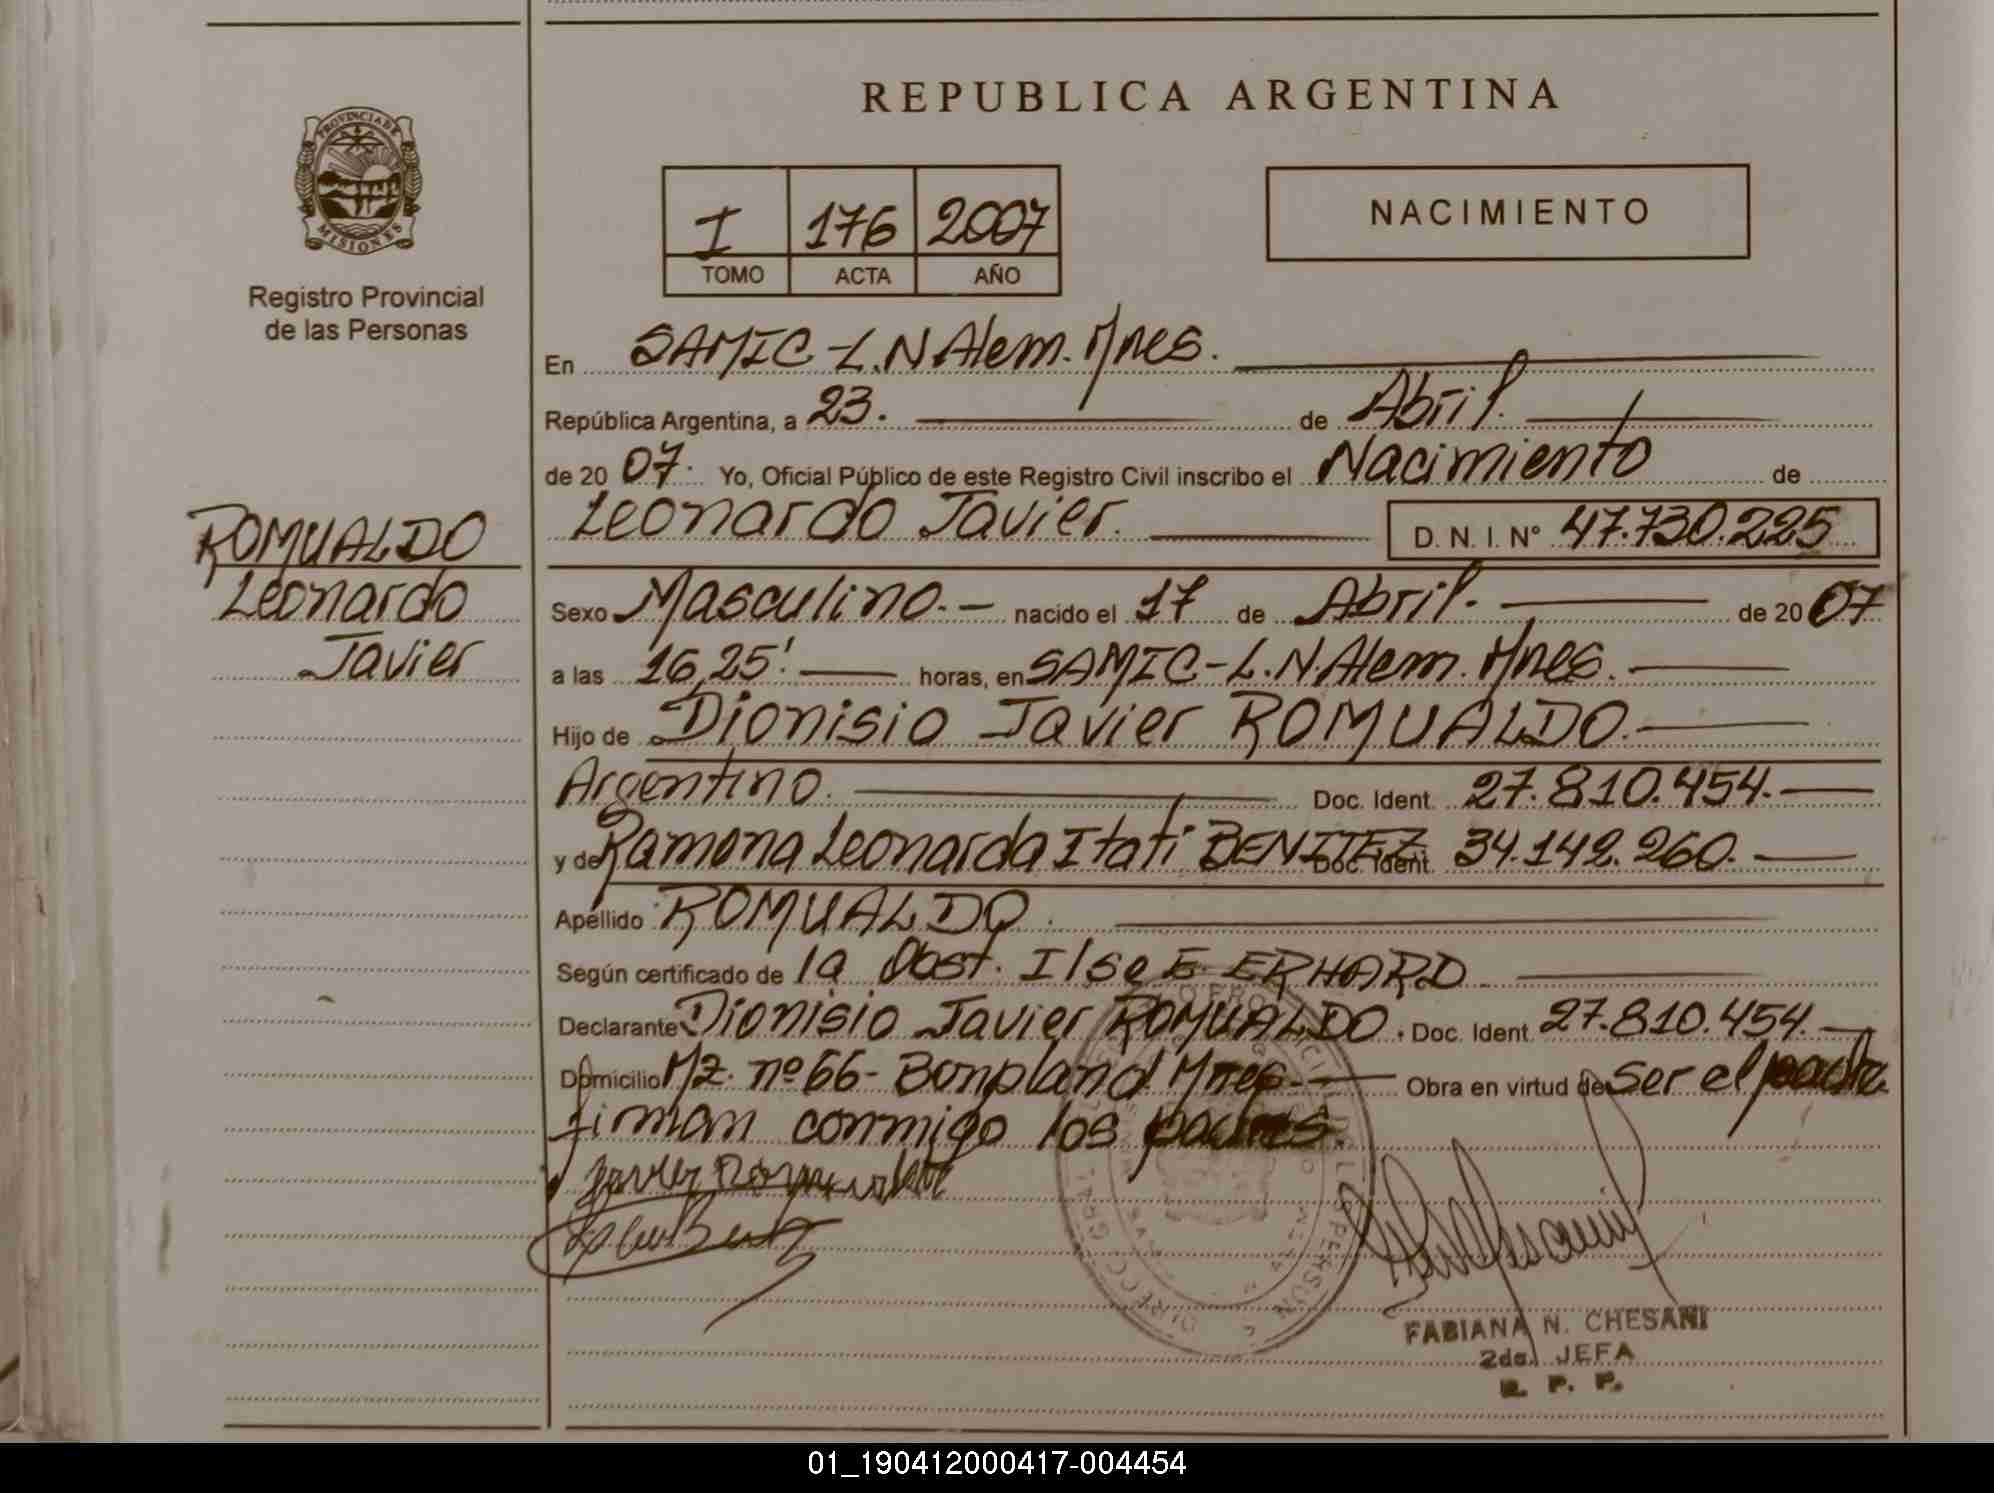 REPUBLICA ARGENTINA
PROVINCIA DE
MISIONES
Registro Provincial
de las Personas
I 176 2007
TOMO ACTA AÑO
NACIMIENTO
En SAMIC - L.N Alem. Mnes.
República Argentina, a 23. de Abril.
de 20 07. Yo, Oficial Público de este Registro Civil inscribo el Nacimiento de
Leonardo Javier. D. N. I. N° 47.730.225
ROMUALDO
Leonardo
Javier
Sexo Masculino. - nacido el 17 de Abril. de 20 07
a las 16,25' horas, en SAMIC - L.N. Alem. Mnes.
Hijo de Dionisio Javier ROMUALDO.
Argentino. Doc. Ident. 27.810.454.
y de Ramona Leonarda Itatí BENITEZ Doc. Ident. 34.142.260.
Apellido ROMUALDO.
Según certificado de la Obst. Ilse E. ERHARD
Declarante Dionisio Javier ROMUALDO. Doc. Ident. 27.810.454.
Domicilio Mz. nº 66 - Bonpland Mnes. Obra en virtud de ser el padre
firman conmigo los padres.
FABIANA N. CHESANI
2da. JEFA
R. P. P.
01_190412000417-004454